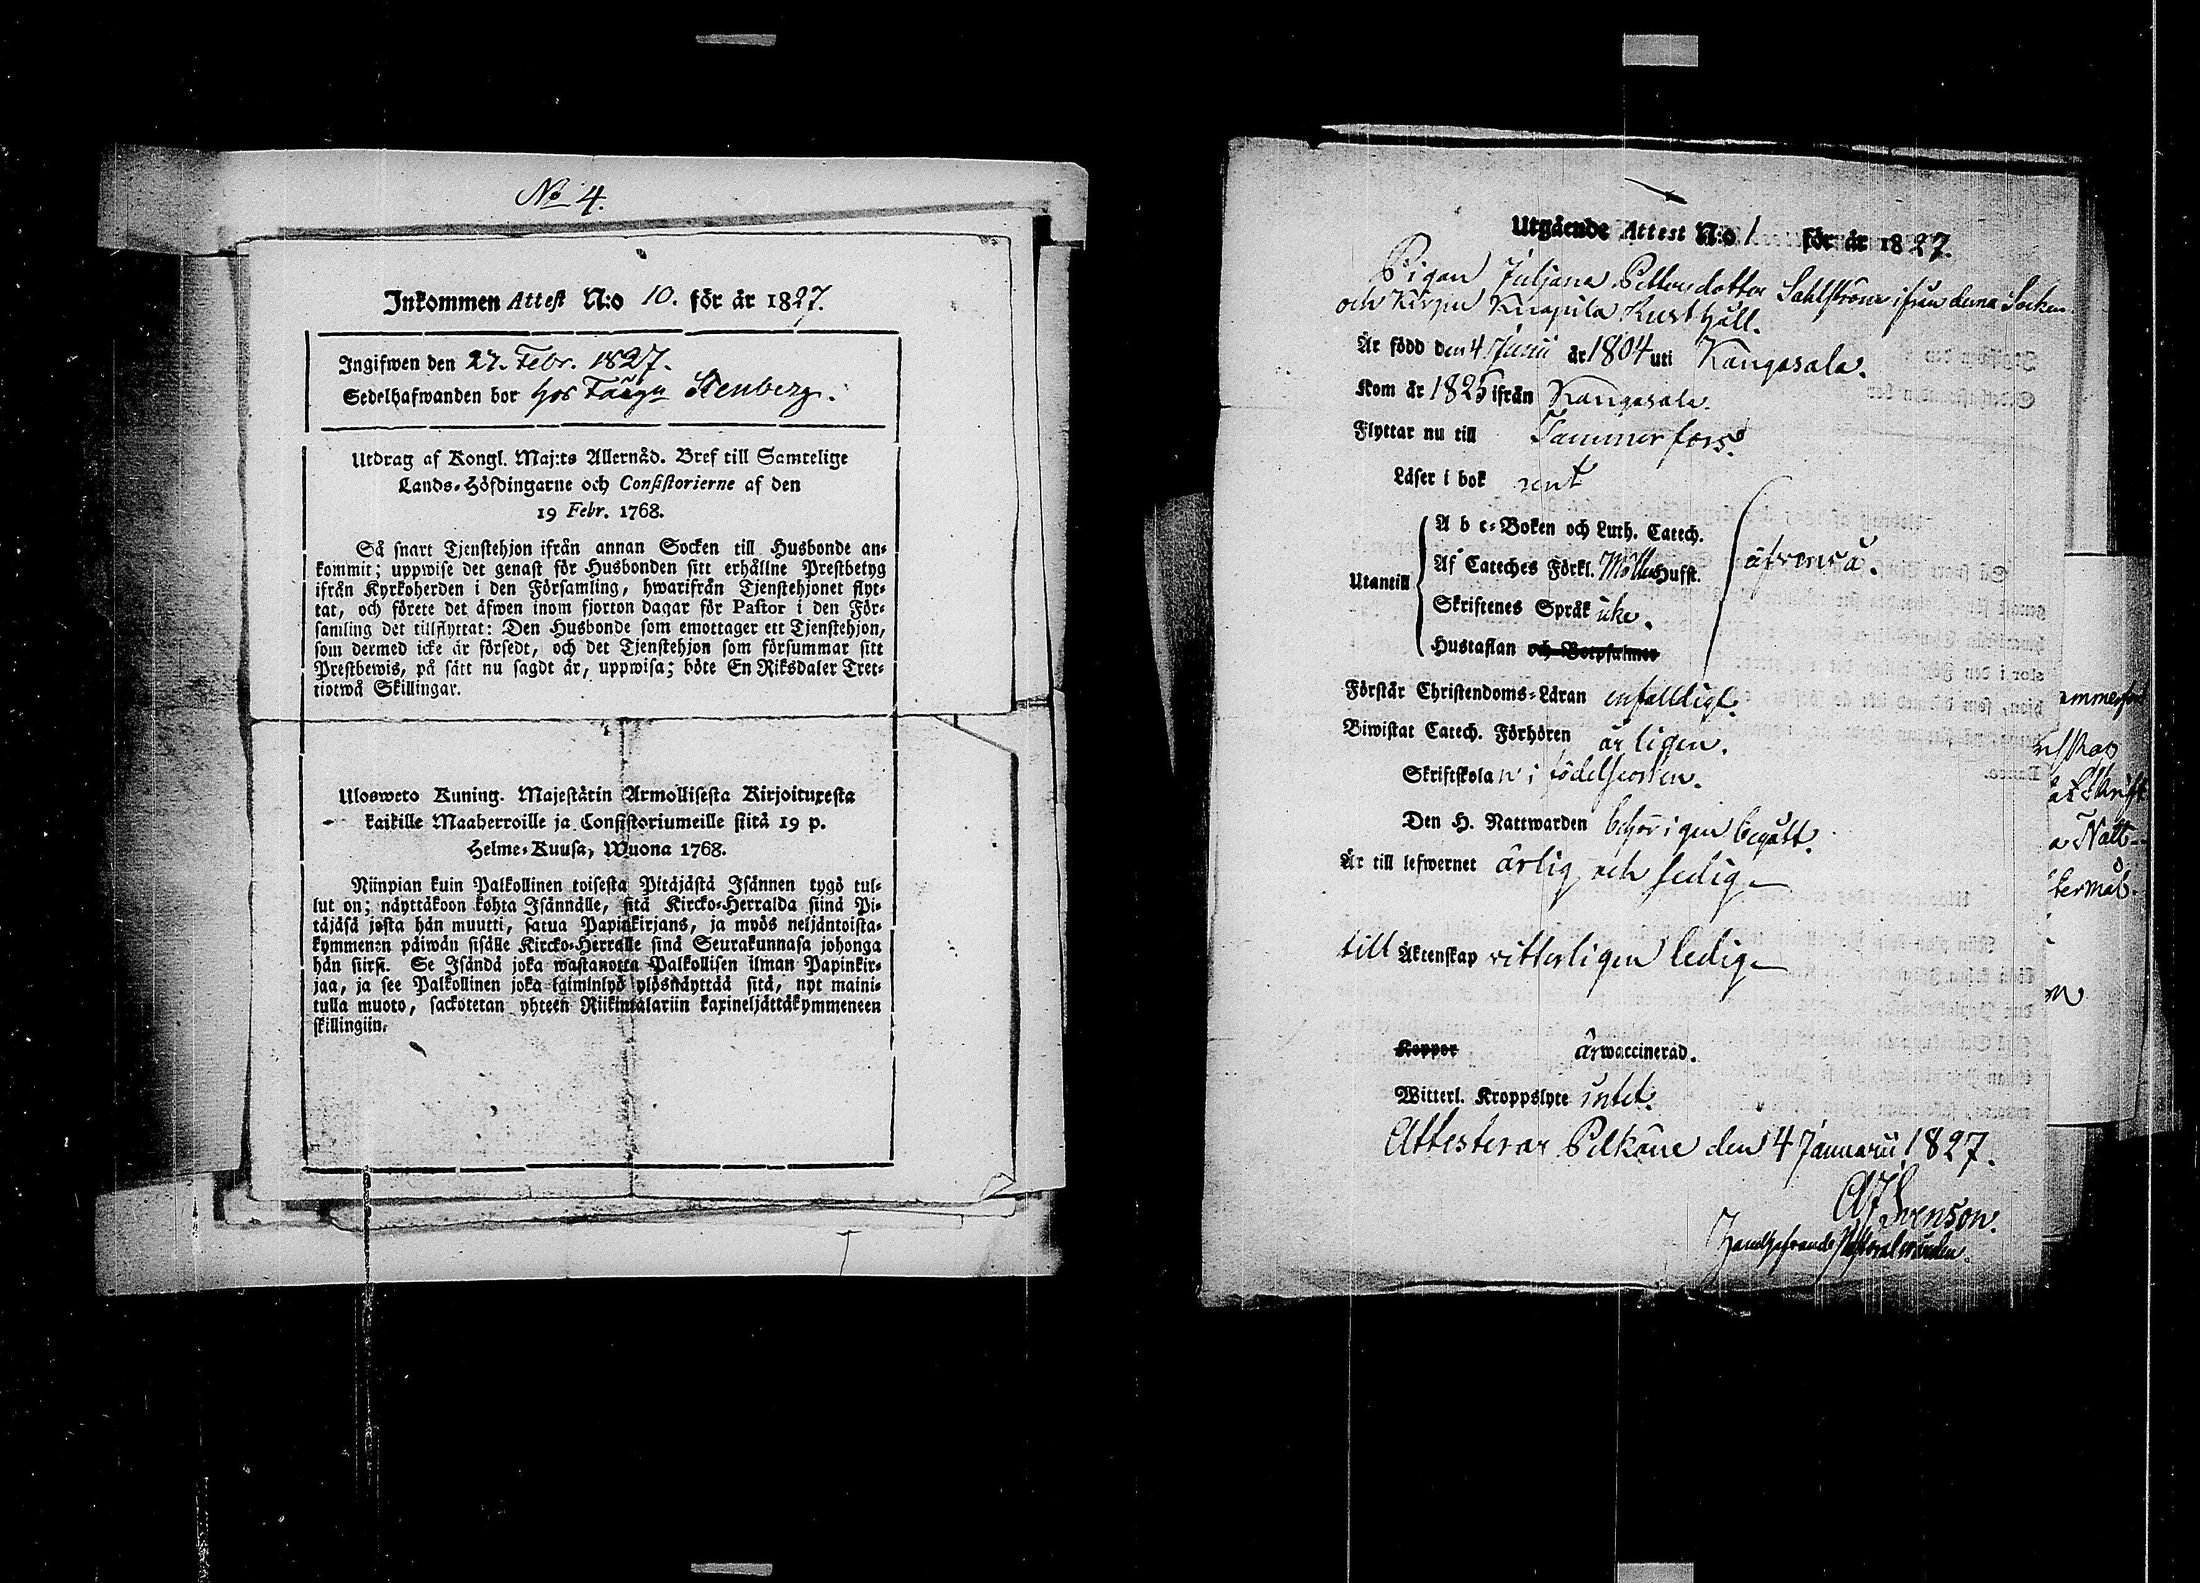 No 4.
Inkommen Attest N:o 10. för år 1827.
Ingifwen den 27. Febr. 1827.
Sedelhafwanden bor hos Färgn Stenberg.
Utdrag af Kongl. Maj:ts Allernåd. Bref till Samtelige
Lands-Höfdingarne och Consistorierne af den
19 Febr. 1768.
Så snart Tjenstehjon ifrån annan Socken till Husbonde an-
kommit; uppwise det genast för Husbonden sitt erhållne Prestbetyg
ifrån Kyrkoherden i den Församling, hwarifrån Tjenstehjonet flyt-
tat, och förete det äfwen inom fjorton dagar för Pastor i den För-
samling det tillflyttat: Den Husbonde som emottager ett Tjenstehjon,
som dermed icke är försedt, och det Tjenstehjon som försummar sitt
Prestbewis, på sätt nu sagdt är, uppwisa; böte En Riksdaler Tret-
tiotwå Skillingar.
Ulosweto Kuning. Majestätin Armollisesta Kirjoituxesta
kaikille Maaherroille ja Consistoriumeille siitä 19 p.
Helme-Kuusa, Wuona 1768.
Niinpian kuin Palkollinen toisesta Pitäjästä Isännen tygö tul-
lut on; näyttäkoon kohta Isännälle, sitä Kircko-Herralda siinä Pi-
täjäsä josta hän muutti, saatua Papinkirjans, ja myös neljäntoista-
kymmenen päiwän sisälle Kircko-Herralle sinä Seurakunnasa johonga
hän siirsi. Se Isändä joka wastanotta Palkollisen ilman Papinkir-
jaa, ja see Palkollinen joka laiminlyö ylösnäyttää sitä, nyt maini-
tulla muoto, sackotetan yhteen Riikintalariin kaxineljättäkymmeneen
skillingiin.
Utgående Attest N:o 1 för år 1827.
Pigan Juljana Pettersdotter Sahlström ifrån denna Socken
och Kirpu Rusthåll.
Är född den 4 Junii år 1804 uti Kangasala.
Kom år 1825 ifrån Kangasala.
Flyttar nu till Tammerfors.
Läser i bok rent
Utantill
A b c-Boken och Luth. Catech.
Af Cateches Förkl. Möllers Husst.
Skriftenes Språk icke.
Hustaflan och Botpsalmer
äfvenså.
Förstår Christendoms-Läran enfalldigt.
Biwistat Catech. Förhören årligen.
Skriftskolan i födelseorten.
Den H. Nattwarden behörigen begått.
Är till lefwernet ärlig och ledig
till Äktenskap vitterligen ledig
Koppor är waccinerad.
Witterl. Kroppslyte intet.
Attesterar Pelkäne den 4 Januarii 1827.
Svenson.
ammerfors
a Natt-